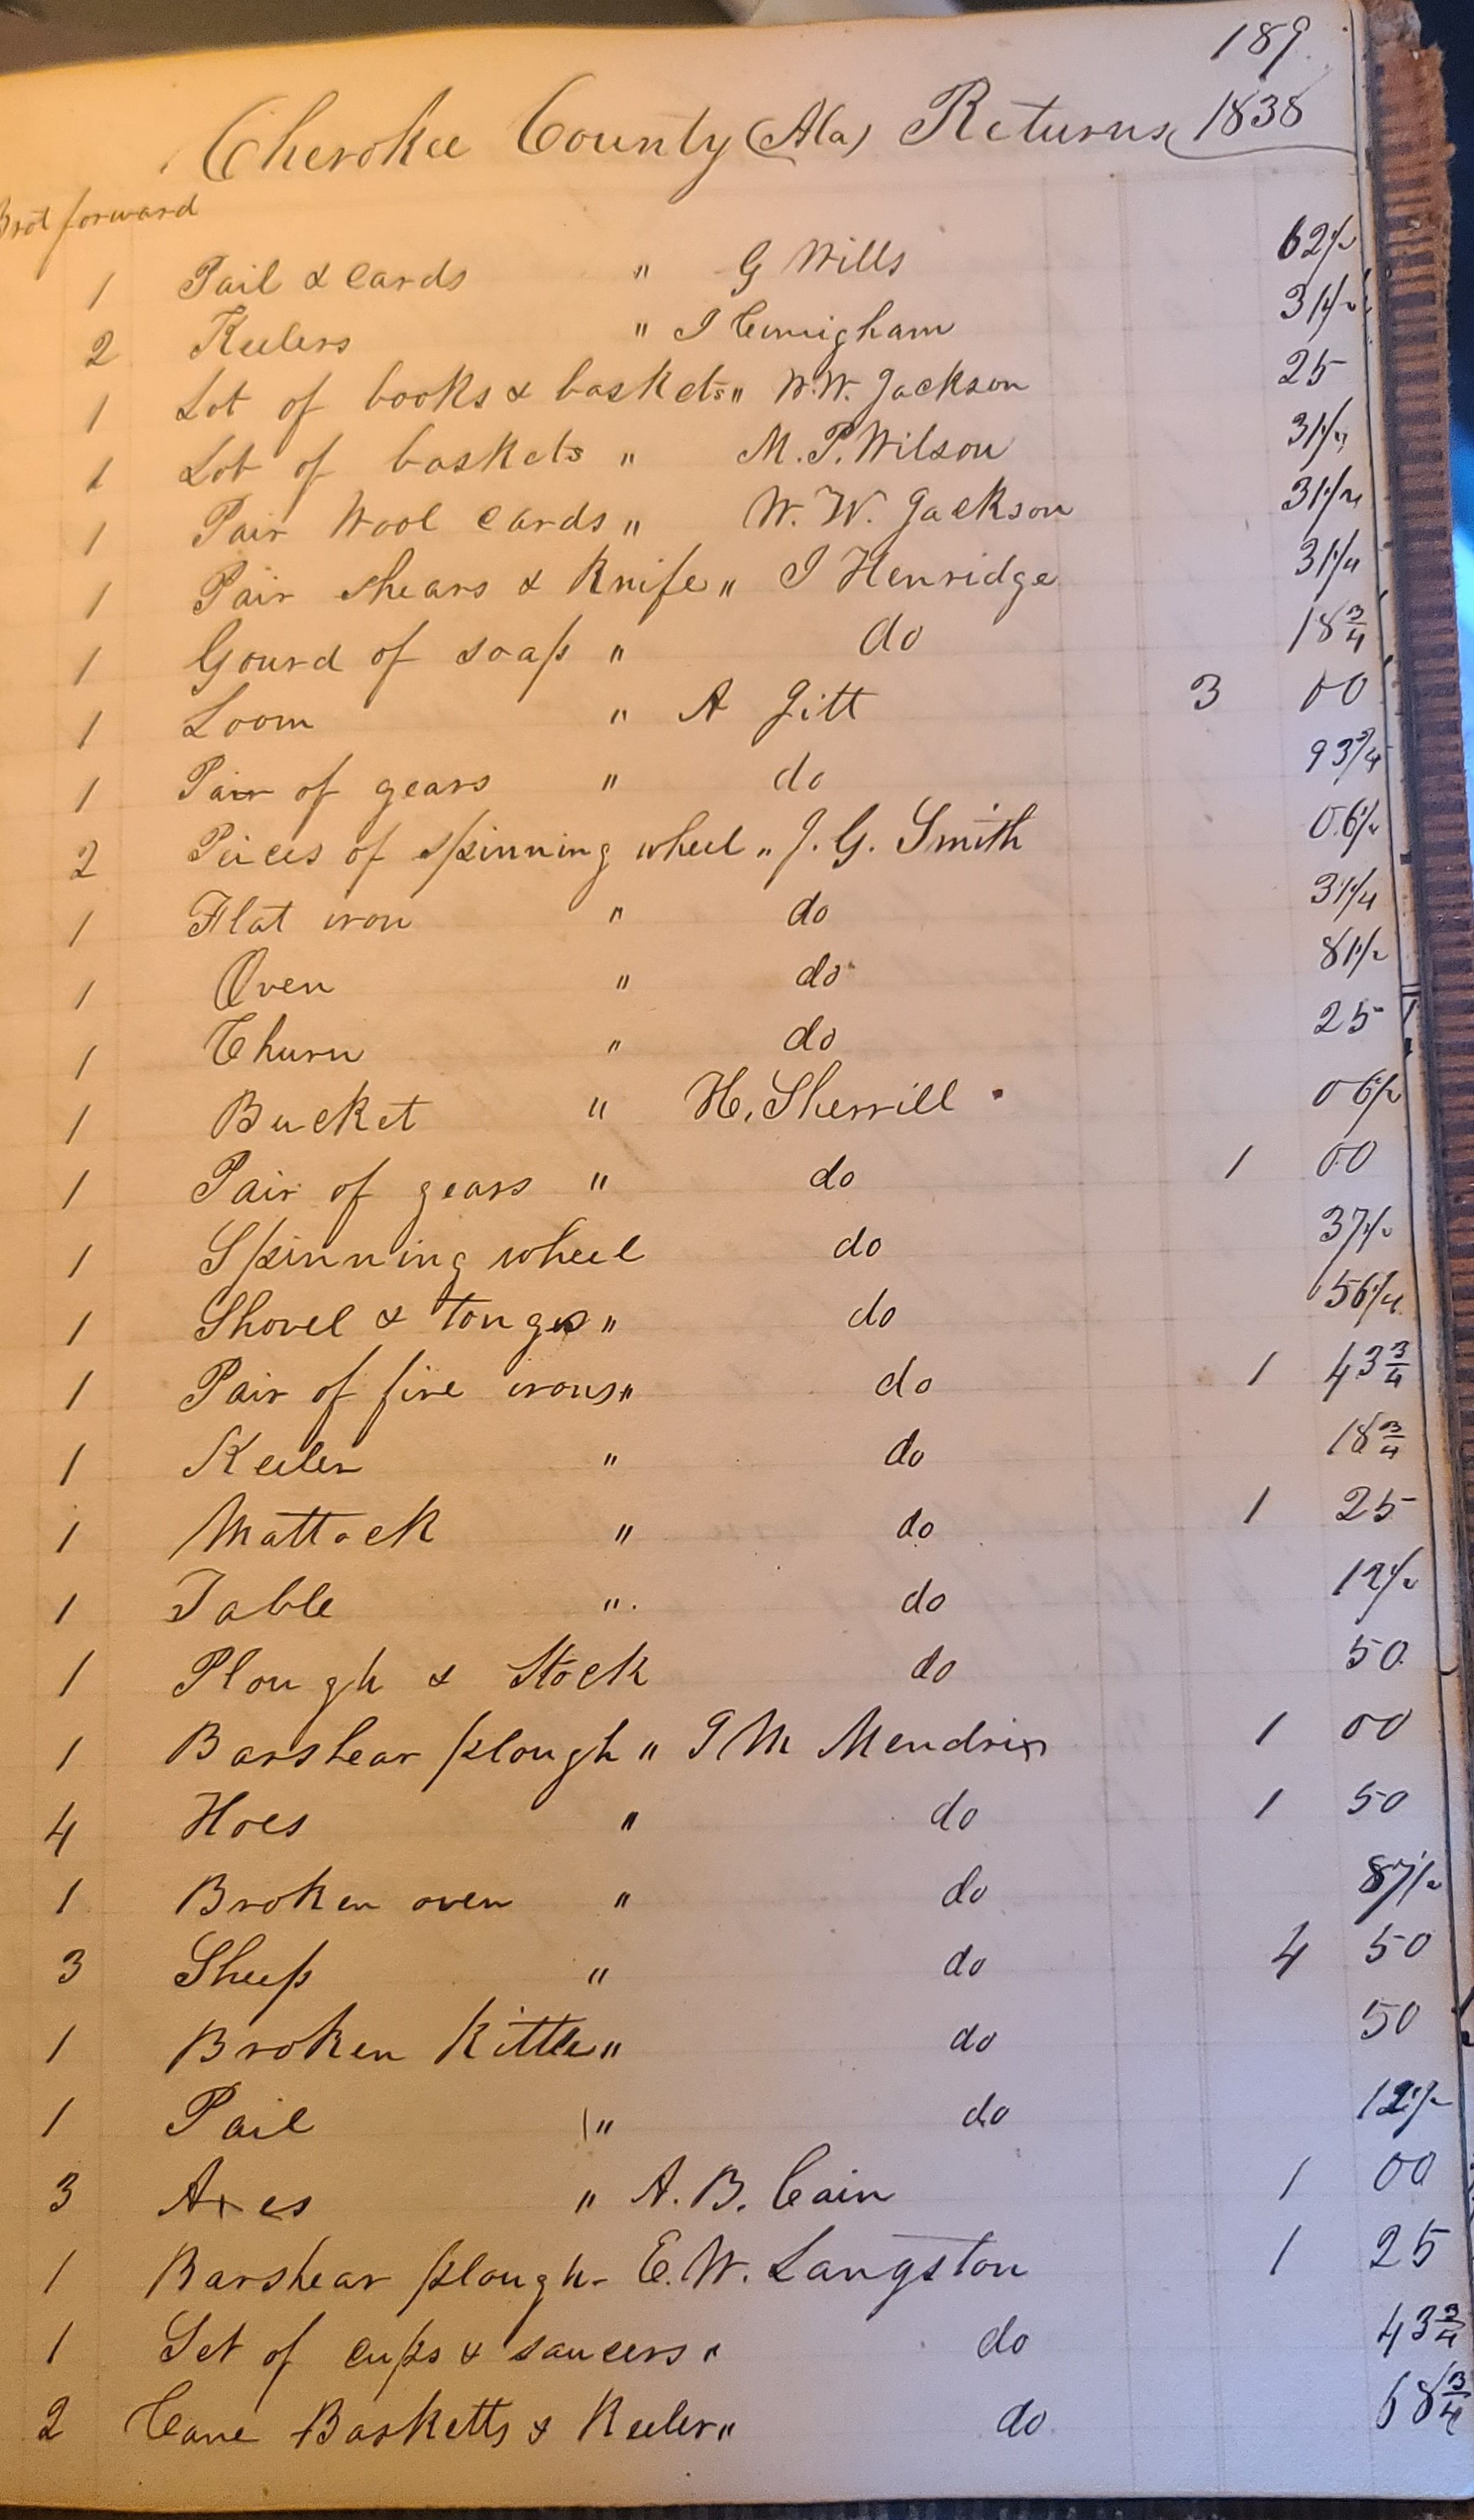 189
Cherokee County (Ala) Returns 1838
Brot forward
1 Pail & cards " G Wills 62½
2 Keelers " I Cunigham 31¼
1 Lot of books & baskets " W.W. Jackson 25
1 Lot of baskets " M.P. Wilson 31¼
1 Pair Wool cards " W. W. Jackson 31¼
1 Pair shears & Knife " I Henridge 31¼
1 Gourd of soap " do 18¾
1 Loom " A Gitt 3 00
1 Pair of gears " do 93¾
2 Pieces of spinning wheel " J. G. Smith 06¼
1 Flat iron " do 31¼
1 Oven " do 81½
1 Churn " do 25
1 Bucket " H. Sherrill 06½
1 Pair of gears " do 1 00
1 Spinning wheel do 37½
1 Shovel & tongs " do 56¼
1 Pair of fire irons " do 1 43¾
1 Keeler " do 18¾
1 Mattock " do 1 25
1 Table " do 12½
1 Plough & Stock do 50
1 Barshear plough " I M Mendrix 1 00
4 Hoes " do 1 50
1 Broken oven " do 87½
3 Sheep " do 4 50
1 Broken Kittle " do 50
1 Pail " do 12½
3 Axes " A. B. Cain 1 00
1 Barshear plough - E. W. Langston 1 25
1 Set of cups & saucers " do 43¾
2 Cane Basketts & Keeler " do 68¾